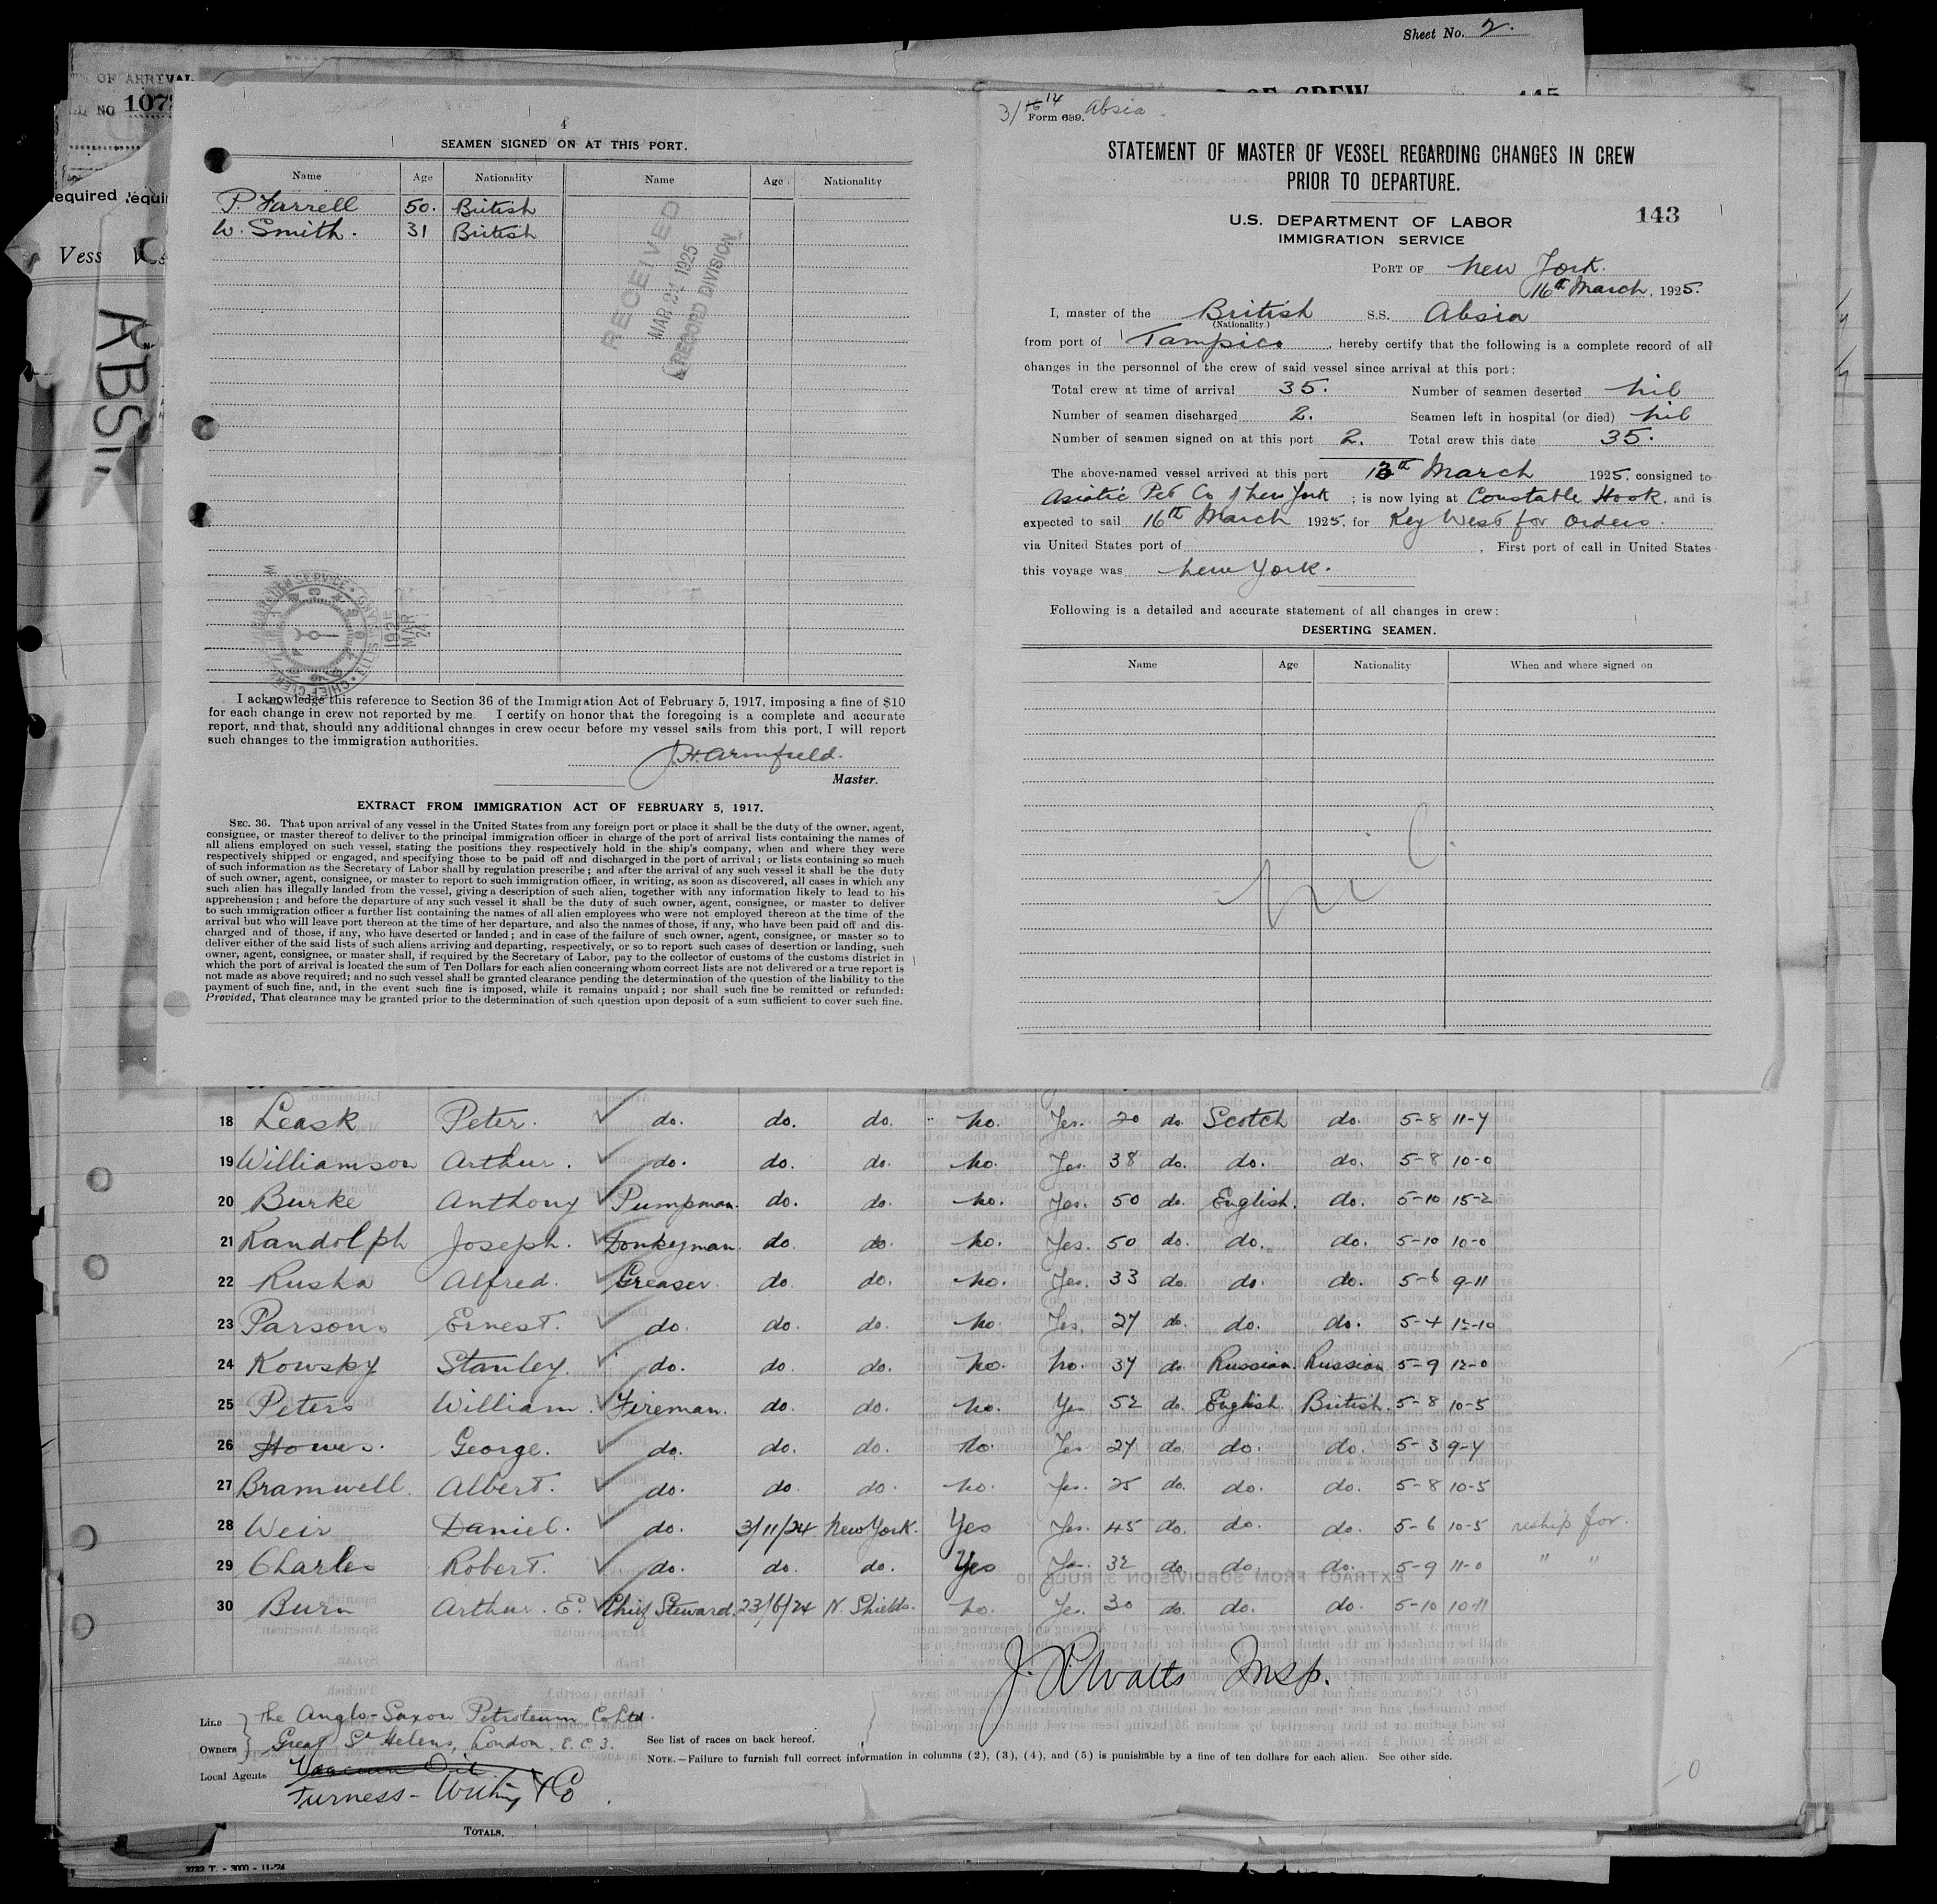 Sheet No. 2.
OF ARRIVAL
NO 107
equired
Vess
ABSI
4
SEAMEN SIGNED ON AT THIS PORT.
Name Age Nationality Name Age Nationality
P. Farrell 50. British
W. Smith. 31 British
RECEIVED
MAR 1925
RECORD DIVISION
I acknowledge this reference to Section 36 of the Immigration Act of February 5, 1917, imposing a fine of $10
for each change in crew not reported by me. I certify on honor that the foregoing is a complete and accurate
report, and that, should any additional changes in crew occur before my vessel sails from this port, I will report
such changes to the immigration authorities.
J. H. Armfield.
Master.
EXTRACT FROM IMMIGRATION ACT OF FEBRUARY 5, 1917.
SEC. 36. That upon arrival of any vessel in the United States from any foreign port or place it shall be the duty of the owner, agent,
consignee, or master thereof to deliver to the principal immigration officer in charge of the port of arrival lists containing the names of
all aliens employed on such vessel, stating the positions they respectively hold in the ship's company, when and where they were
respectively shipped or engaged, and specifying those to be paid off and discharged in the port of arrival; or lists containing so much
of such information as the Secretary of Labor shall by regulation prescribe; and after the arrival of any such vessel it shall be the duty
of such owner, agent, consignee, or master to report to such immigration officer, in writing, as soon as discovered, all cases in which any
such alien has illegally landed from the vessel, giving a description of such alien, together with any information likely to lead to his
apprehension; and before the departure of any such vessel it shall be the duty of such owner, agent, consignee, or master to deliver
to such immigration officer a further list containing the names of all alien employees who were not employed thereon at the time of the
arrival but who will leave port thereon at the time of her departure, and also the names of those, if any, who have been paid off and dis-
charged and of those, if any, who have deserted or landed; and in case of the failure of such owner, agent, consignee, or master so to
deliver either of the said lists of such aliens arriving and departing, respectively, or so to report such cases of desertion or landing, such
owner, agent, consignee, or master shall, if required by the Secretary of Labor, pay to the collector of customs of the customs district in
which the port of arrival is located the sum of Ten Dollars for each alien concerning whom correct lists are not delivered or a true report is
not made as above required; and no such vessel shall be granted clearance pending the determination of the question of the liability to the
payment of such fine, and, in the event such fine is imposed, while it remains unpaid; nor shall such fine be remitted or refunded:
Provided, That clearance may be granted prior to the determination of such question upon deposit of a sum sufficient to cover such fine.
3/ 14 Absia.
Form 689.
STATEMENT OF MASTER OF VESSEL REGARDING CHANGES IN CREW
PRIOR TO DEPARTURE.
U.S. DEPARTMENT OF LABOR
IMMIGRATION SERVICE
143
PORT OF New York.
16th March, 1925.
I, master of the British S.S. Absia
(Nationality.)
from port of Tampico, hereby certify that the following is a complete record of all
changes in the personnel of the crew of said vessel since arrival at this port:
Total crew at time of arrival 35. Number of seamen deserted nil
Number of seamen discharged 2. Seamen left in hospital (or died) nil
Number of seamen signed on at this port 2. Total crew this date 35.
The above-named vessel arrived at this port 13th March 1925, consigned to
Asiatic Pet Co New York; is now lying at Constable Hook, and is
expected to sail 16th March 1925, for Key West for Orders.
via United States port of , First port of call in United States
this voyage was New York.
Following is a detailed and accurate statement of all changes in crew:
DESERTING SEAMEN.
Name Age Nationality When and where signed on
Nil
18 Leask Peter. do. do. do. no. Yes. 20 do. Scotch do. 5-8 11-7
19 Williamson Arthur. do. do. do. no. Yes. 38 do. do. do. 5-8 10-0
20 Burke Anthony Pumpman. do. do. no. Yes. 50 do. English. do. 5-10 15-2
21 Randolph Joseph. Donkeyman. do. do. no. Yes. 50 do. do. do. 5-10 10-0
22 Rusha Alfred. Greaser. do. do. no. Yes. 33 do. do. do. 5-6 9-11
23 Parsons Ernest. do. do. do. no. Yes. 27 do. do. do. 5-4 12-10
24 Kowsky Stanley. do. do. do. no. no. 37 do. Russian. Russian. 5-9 12-0
25 Peters William. Fireman. do. do. no. Yes 52 do. English. British. 5-8 10-5
26 Howes. George. do. do. do. no. Yes 27 do. do. do. 5-3 9-7
27 Bramwell. Albert. do. do. do. no. Yes. 25 do. do. do. 5-8 10-5
28 Weir Daniel. do. 3/11/24 New York. Yes Yes. 45 do. do. do. 5-6 10-5 reship for.
29 Charles Robert. do. do. do. Yes Yes. 32 do. do. do. 5-9 11-0 " "
30 Burn Arthur. E. Chief Steward. 23/6/24 N. Shields. no. Yes. 30 do. do. do. 5-10 10-11
J. Watts Insp.
Line The Anglo-Saxon Petroleum Co Ltd.
Owners Great St Helens, London. E.C.3.
Local Agents Vacuum Oil
Furness-Withy & Co.
See list of races on back hereof.
NOTE.—Failure to furnish full correct information in columns (2), (3), (4), and (5) is punishable by a fine of ten dollars for each alien. See other side.
TOTALS.